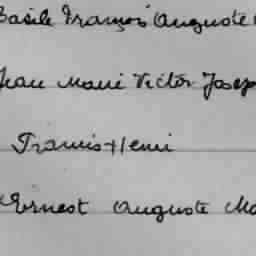 Basile François Auguste
Jean Marie Victor Josep
Francis Henri
Ernest Auguste Ma